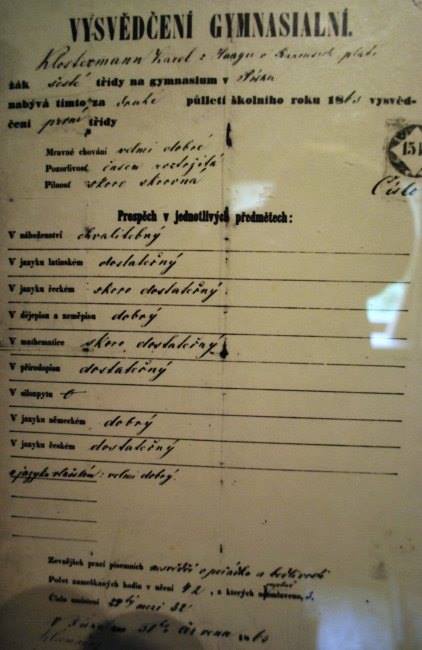 VYSVĚDČENÍ GYMNASIALNÍ.
Klostermann Karel z Haagu v
žák šesté třídy na gymnasium v Písku
nabývá tímto za druhé půlletí školního roku 186 vysvěd-
čení první třídy
Mravné chování velmi dobré
Pozorlivosť časem roztržitá
Pilnosť skoro skrovná
151
Číslo
Prospěch v jednotlivých předmětech:
V náboženství chvalitebný
V jazyku latinském dostatečný
V jazyku řeckém skoro dostatečný
V dějepisu a zeměpisu dobrý
V mathematice skoro dostatečný
V přírodopisu dostatečný
V silozpytu
V jazyku německém dobrý
V jazyku českém dostatečný
z jazyka vlašském: velmi dobrý.
Zevnějšek prací písemních
Počet zameškaných hodin v učení 42, z kterých
Číslo umístění mezi 32
V